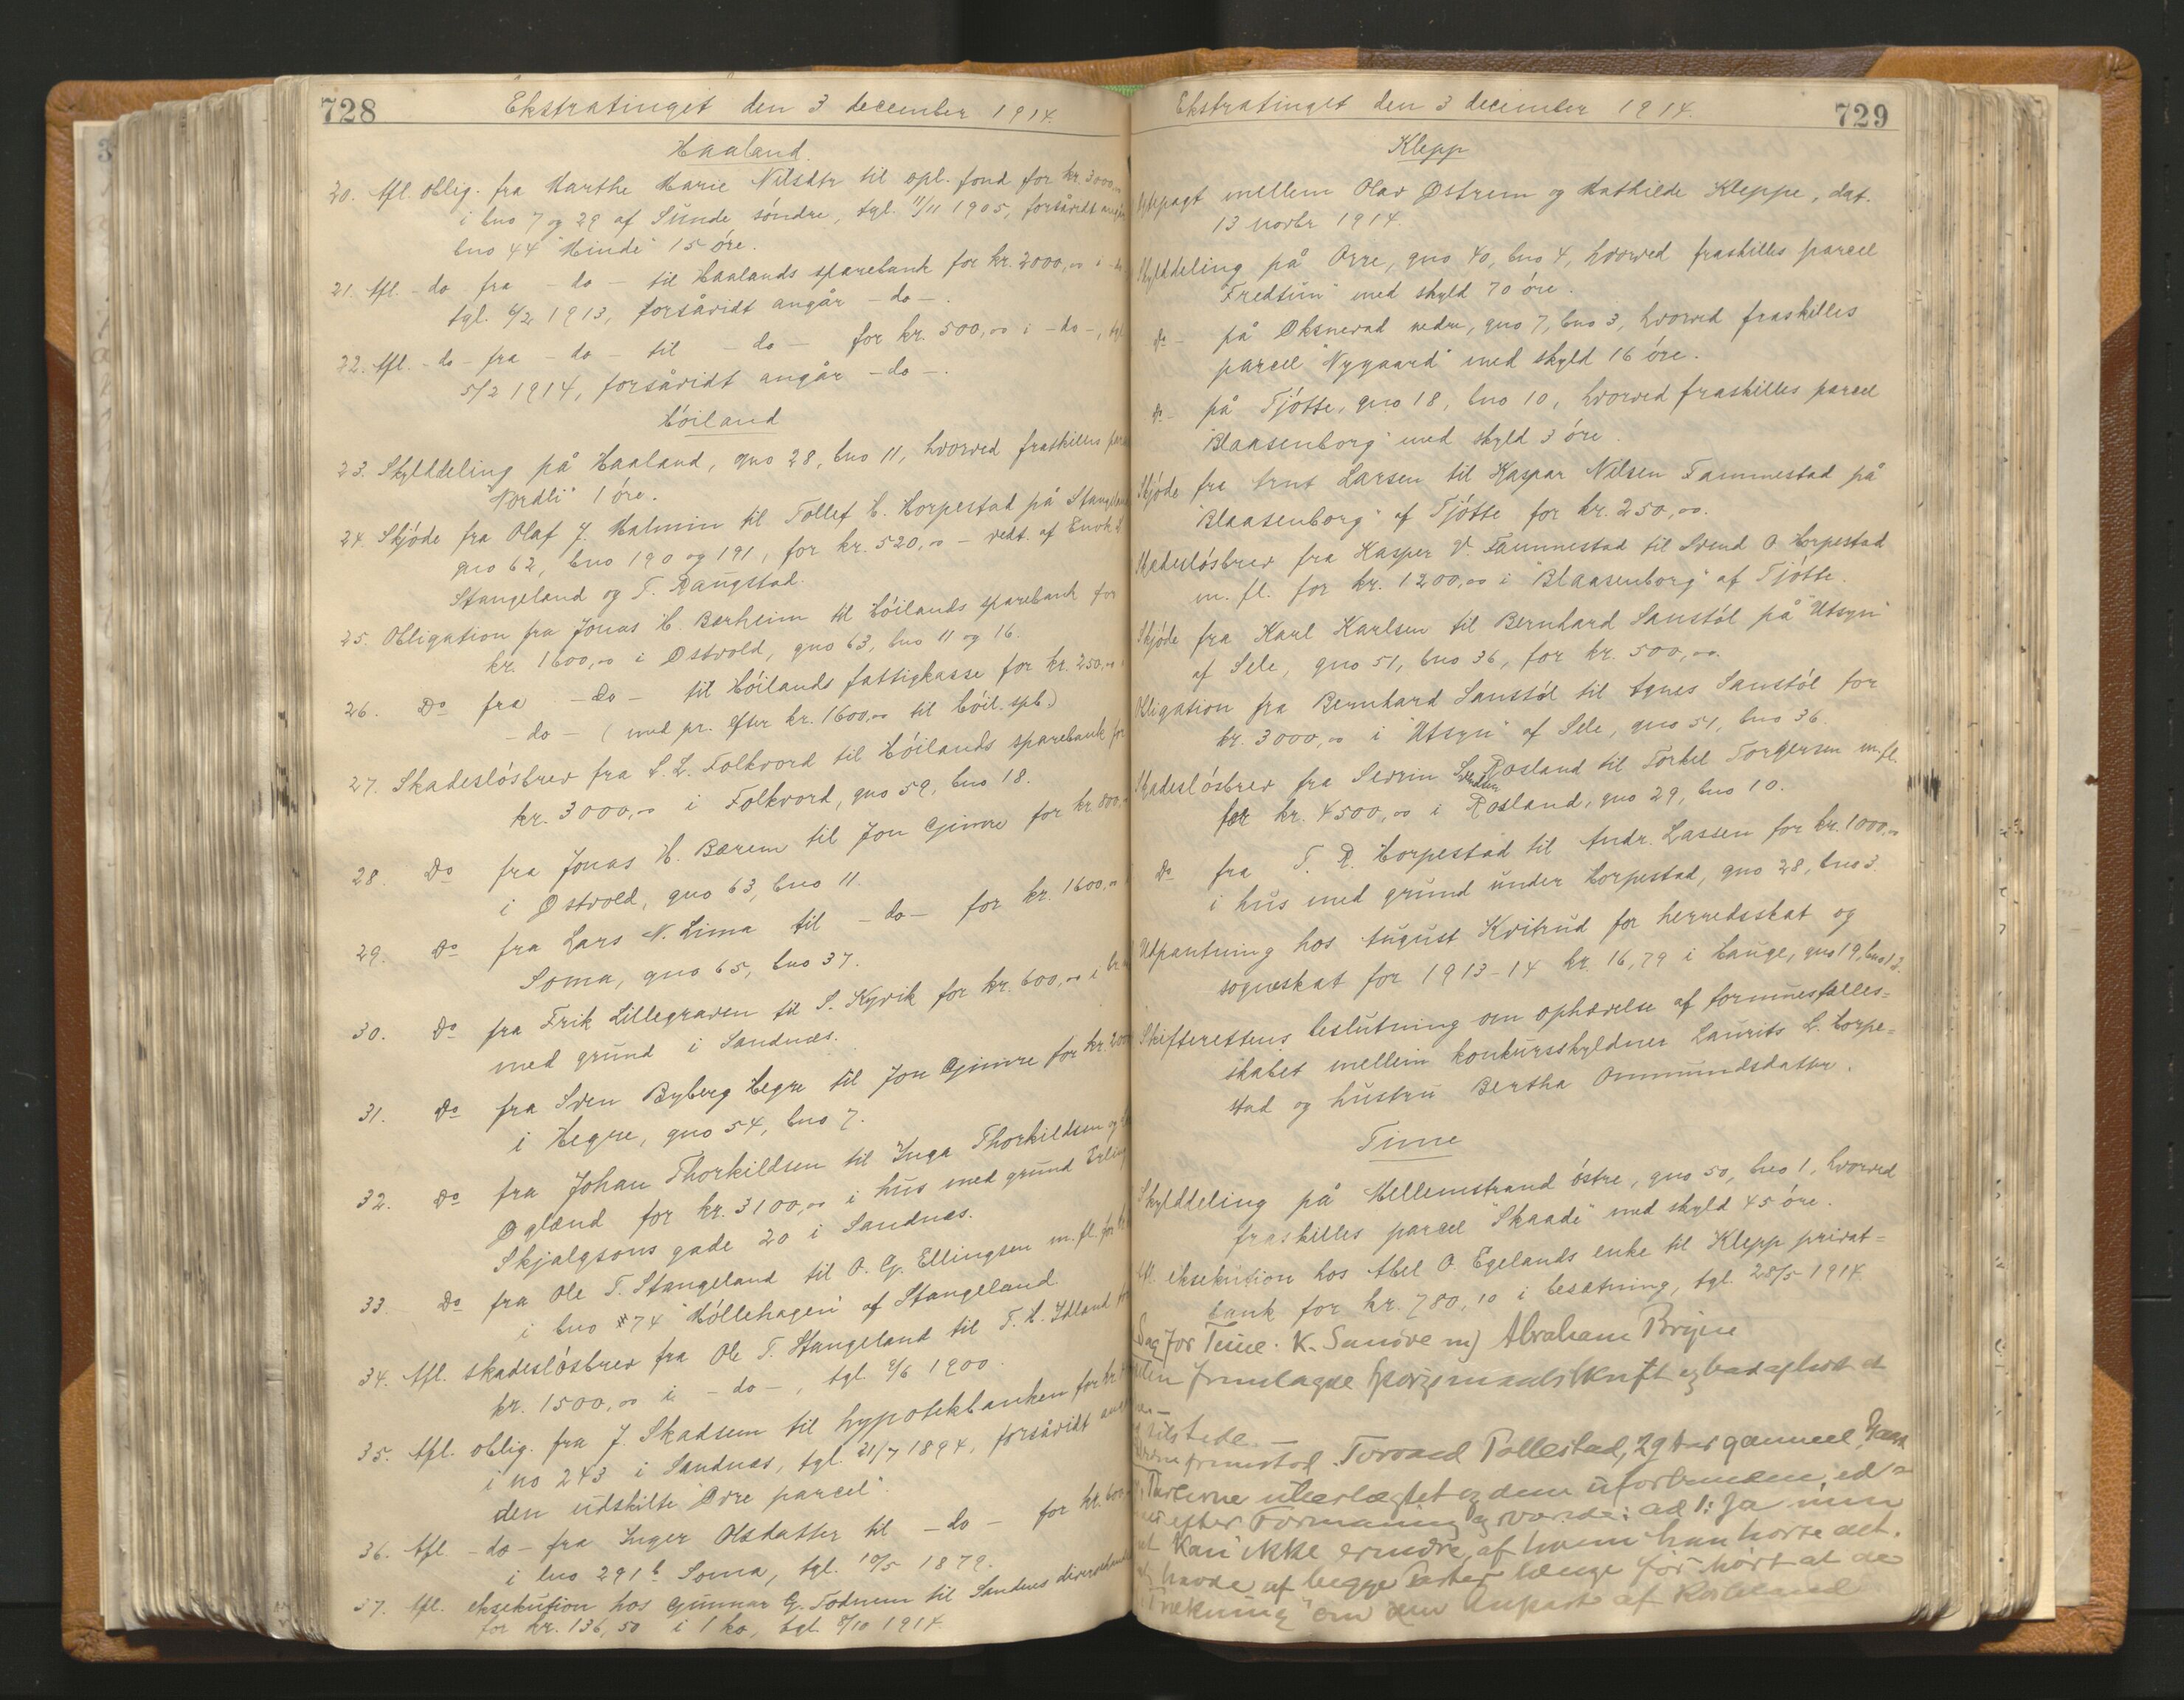 728
Ekstratinget den 3 december 1914.
Haaland.
20. Afl. oblig. fra Marthe Marie Nilsdtr til opl. fond for kr. 3000,00
i bno 7 og 29 af Sunde søndre, tgl. 11/11 1905, forsåvidt angår
bno 44 "Minde" 15 øre.
21. Afl. - do - fra - do - til Haalands sparebank for kr. 2000,00 i - do
tgl. 6/2 1913, forsåvidt angår - do -.
22. Afl. - do - fra - do - til - do - for kr. 500,00 i - do -, tgl
5/2 1914, forsåvidt angår - do -.
Høiland
23. Skylddeling på Haaland, gno 28, bno 11, hvorved fraskilles
"Nordli" 1 øre.
24. Skjøde fra Olaf J. Malmin til Tollef H. Horpestad på Stangeland
gno 62, bno 190 og 191, for kr. 520,00 - vedt. af Enok
Stangeland og T. Raugstad.
25. Obligation fra Jonas H. Bærheim til Høilands sparebank for
kr. 1600,00 i Østvold, gno 63, bno 11 og 16.
26. Do fra - do - til Høilands fattigkasse for kr. 250,00
- do - (med pr. efter kr. 1600,00 til Høil. spb.)
27. Skadesløsbrev fra S. L. Folkvord til Høilands sparebank for
kr. 3000,00 i Folkvord, gno 59, bno 18.
28. Do fra Jonas H. Bærem til Jon Gjimre for kr 800,
i Østvold, gno 63, bno 11.
29. Do fra Lars N. Lima til - do - for kr. 1600,00
Soma, gno 65, bno 37.
30. Do fra Frik Lillegraven til S. Kyvik for kr. 600,00 i
med grund i Sandnæs.
31. Do fra Sven Byberg Hegre til Jon Gjimre for kr. 200
i Hegre, gno 54, bno 7.
32. Do fra Johan Thorkildsen til Inga Thorkildsen og
Øglænd for kr. 3100,00 i hus med grund Erling
Skjalgsons gade 20 i Sandnæs.
33. Do fra Ole T. Stangeland til O. G. Ellingsen m. fl. for
i bno 74 "Møllehagen" af Stangeland.
34. Afl. skadesløsbrev fra Ole T. Stangeland til T. H. Idland for
kr. 1500,00 i - do -, tgl. 6/6 1900.
35. Afl. oblig. fra J. Skadsem til hypotekbanken for kr
i no 243 i Sandnæs, tgl. 31/7 1894, forsåvidt
den udskilte "Øvre parcel".
36. Afl - do - fra Inger Olsdatter til - do - for kr. 600
i lno 291 b Soma, tgl. 10/5 1879.
37. Afl. eksekution hos Gunnar G. Todnem til Sandnæs
for kr. 136,50 i 1 ko, tgl. 8/10 1914.
729
Ekstratinget den 3 december 1914.
Klepp
mellem Olav Østrem og Mathilde Kleppe, dat.
13 novbr 1914.
Skylddeling på Orre, gno 40, bno 4, hvorved fraskilles parcel
"Fredtun" med skyld 70 øre.
do - på Øksnevad nedre, gno 7, bno 3, hvorved fraskilles
parcel "Nygaard" med skyld 16 øre.
do - på Tjøtte, gno 18, bno 10, hvorved fraskilles parcel
"Blaasenborg" med skyld 3 øre.
Skjøde fra Arnt Larsen til Kaspar Nilsen Tammestad på
"Blaasenborg" af Tjøtte for kr. 250,00.
Skadesløsbrev fra Kasper N. Tammestad til Svend O Horpestad
m. fl. for kr. 1200,00 i "Blaasenborg" af Tjøtte.
Skjøde fra Karl Karlsen til Bernhard Sanstøl på "Utsyn"
af Sele, gno 51, bno 36, for kr. 500,00.
Obligation fra Bernhard Sanstøl til Agnes Sanstøl for
kr. 3000,00 i "Utsyn" af Sele, gno 51, bno 36.
Skadesløsbrev fra Sevrin Rosland til Torkel Torgersen m. fl.
for kr. 4500,00 i Rosland, gno 29, bno 10.
Do fra T. R. Horpestad til Andr. Lassen for kr. 1000,00
i hus med grund under Horpestad, gno 28, bno 3
Utpantning hos August Kvitrud for herredsskat og
sogneskat for 1913-14 kr. 16,79 i Hauge, gno 19, bno 13.
Skifterettens beslutning om ophævelse af formuesfælles=
skabet mellem konkursskyldner Laurits L. Horpe=
stad og hustru Bertha Ommundsdatter.
Time
Skylddeling på Mellemstrand østre, gno 50, bno 1, hvorved
fraskilles parcel "Skaadi" med skyld 45 øre.
Afl. eksekution hos Abel O. Egelands enke til Klepp privat=
bank for kr. 780,10 i besætning, tgl. 28/5 1914.
Sag for Time: K. Sandve m) Abraham Bryne
fremlagde Spørgsmaalsskrift og bad afhørt
tilstede. -
Torvald Tollestad, 29 Aar gammel,
efter Formaning og svarede: ad 1: Ja men
kan ikke erindre, af hvem han hørte det.
havde af begge længe før hørt at de
om den Anpart af